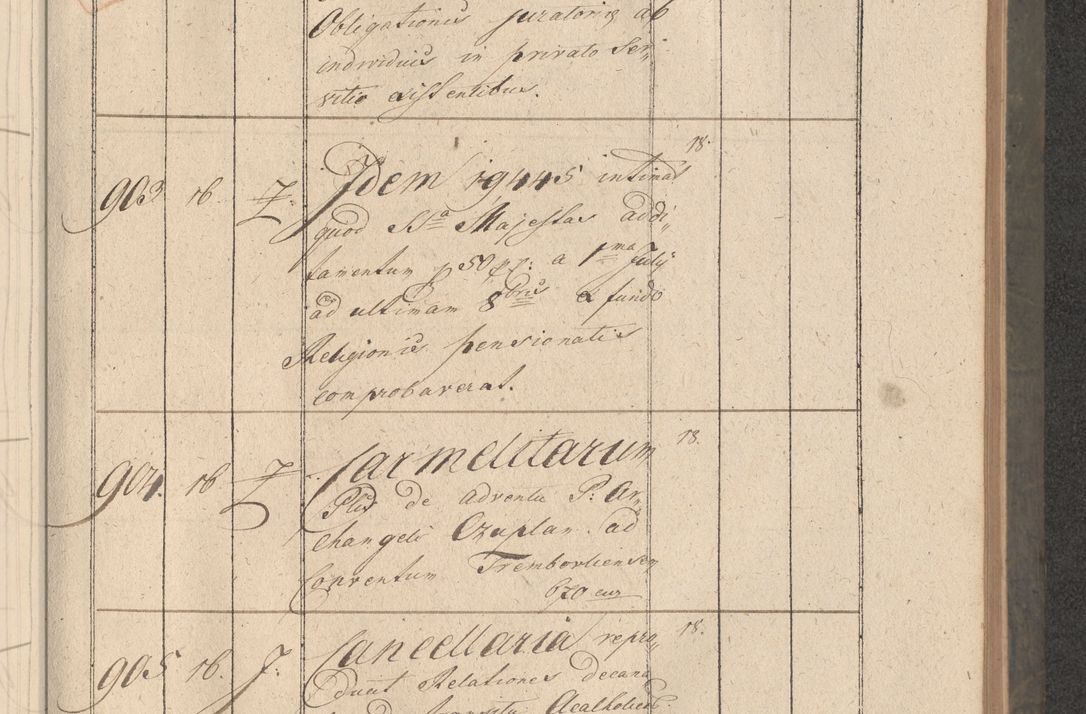 Obligationis juratoriæ ab
individuis in privato Ser„
vitio existentibus.
18.
903 16. Z: Idem 19445 intimat
quod S̃S̃ᵃ Majestas addi„
tamentum p 50 fr: a 1ᵐᵃ Julij
ad ultimam 8ᵇʳⁱˢ ex fundo
Religionis pensionatis
comprobaverat.
904. 16 Z Carmelitarum 18.
Plis de adventu P: Ar„
changeli Czaplan ad
Conventum Trembovliensem
670 cur
905 16. J: Cancellaria repro„ 18.
ducit Relationes decana
Acatholic